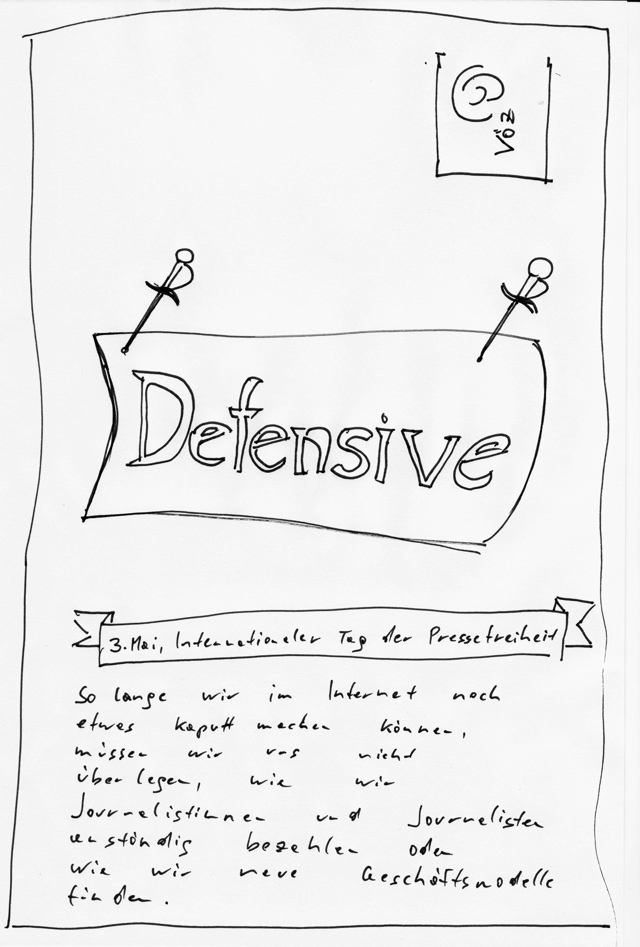 VÖZ
Defensive
3. Mai, Internationaler Tag der Pressefreiheit
So lange wir im Internet noch
etwas kaputt machen können,
müssen wir uns nicht
überlegen, wie wir
Journalistinnen und Journalisten
anständig bezahlen oder
wie wir neue Geschäftsmodelle
finden.